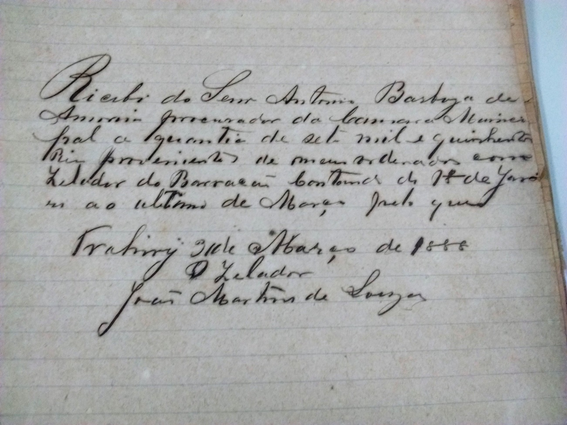 Ricebi do Senr Antonio Barboza de
Amorim procurador da Camara Munice
pal a quantia de sete mil e quinhentos
Reis provenientes de meus ordenados como
Zelador do Barracão Contados do 1º de Janei
ro ao ultimo de Março pelo que
Trahiry 31 de Março de 1888
O Zelador
João Martins de Souza